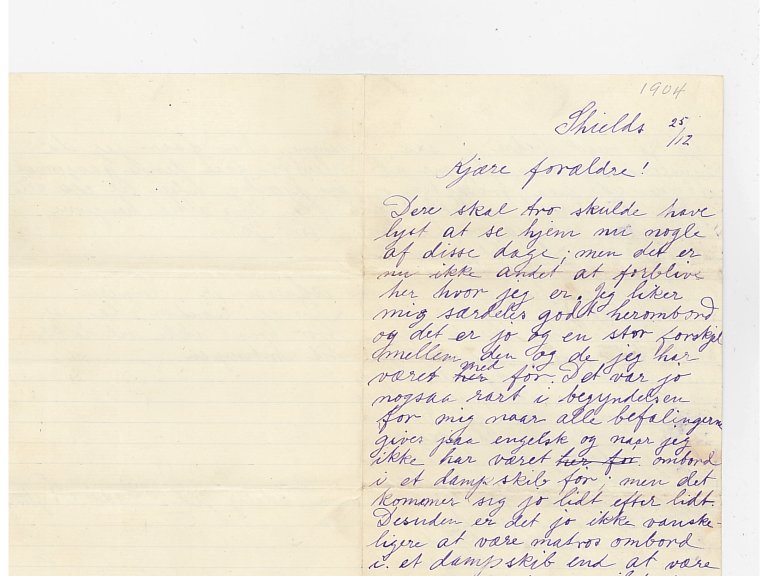 1904
Shields 25/12
Kjære forældre!
Dere skal tro skulde have
lyst at se hjem nu nogle
af disse dage; men det er
nu ikke andet at forblive
her hvor jeg er. Jeg liker
mig særdeles godt herombord
og det er jo og en stor forskjel
mellem den og de jeg har
været her med før. Det var jo
nogsaa rart i begyndelsen
for mig naar alle befalingerne
gives paa engelsk og naar jeg
ikke har været her før ombord
i et dampskib før; men det
kommer sig jo lidt efter lidt.
Desuden er det jo ikke vanske-
ligere at være matros ombord
i et dampskib end at være